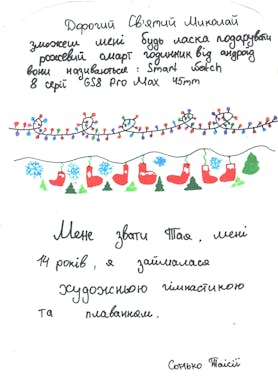 Дорогий Св'ятий Миколай
зможеш мені будь ласка подарувати
рожевий смарт годинник від андроїд
вони називаються: Smart watch
8 серії GS8 Pro Max 45mm
Мене звати Тая, мені
14 років, я займалася
художньою гімнастикою
та плаванням.
Сонько Таїсії